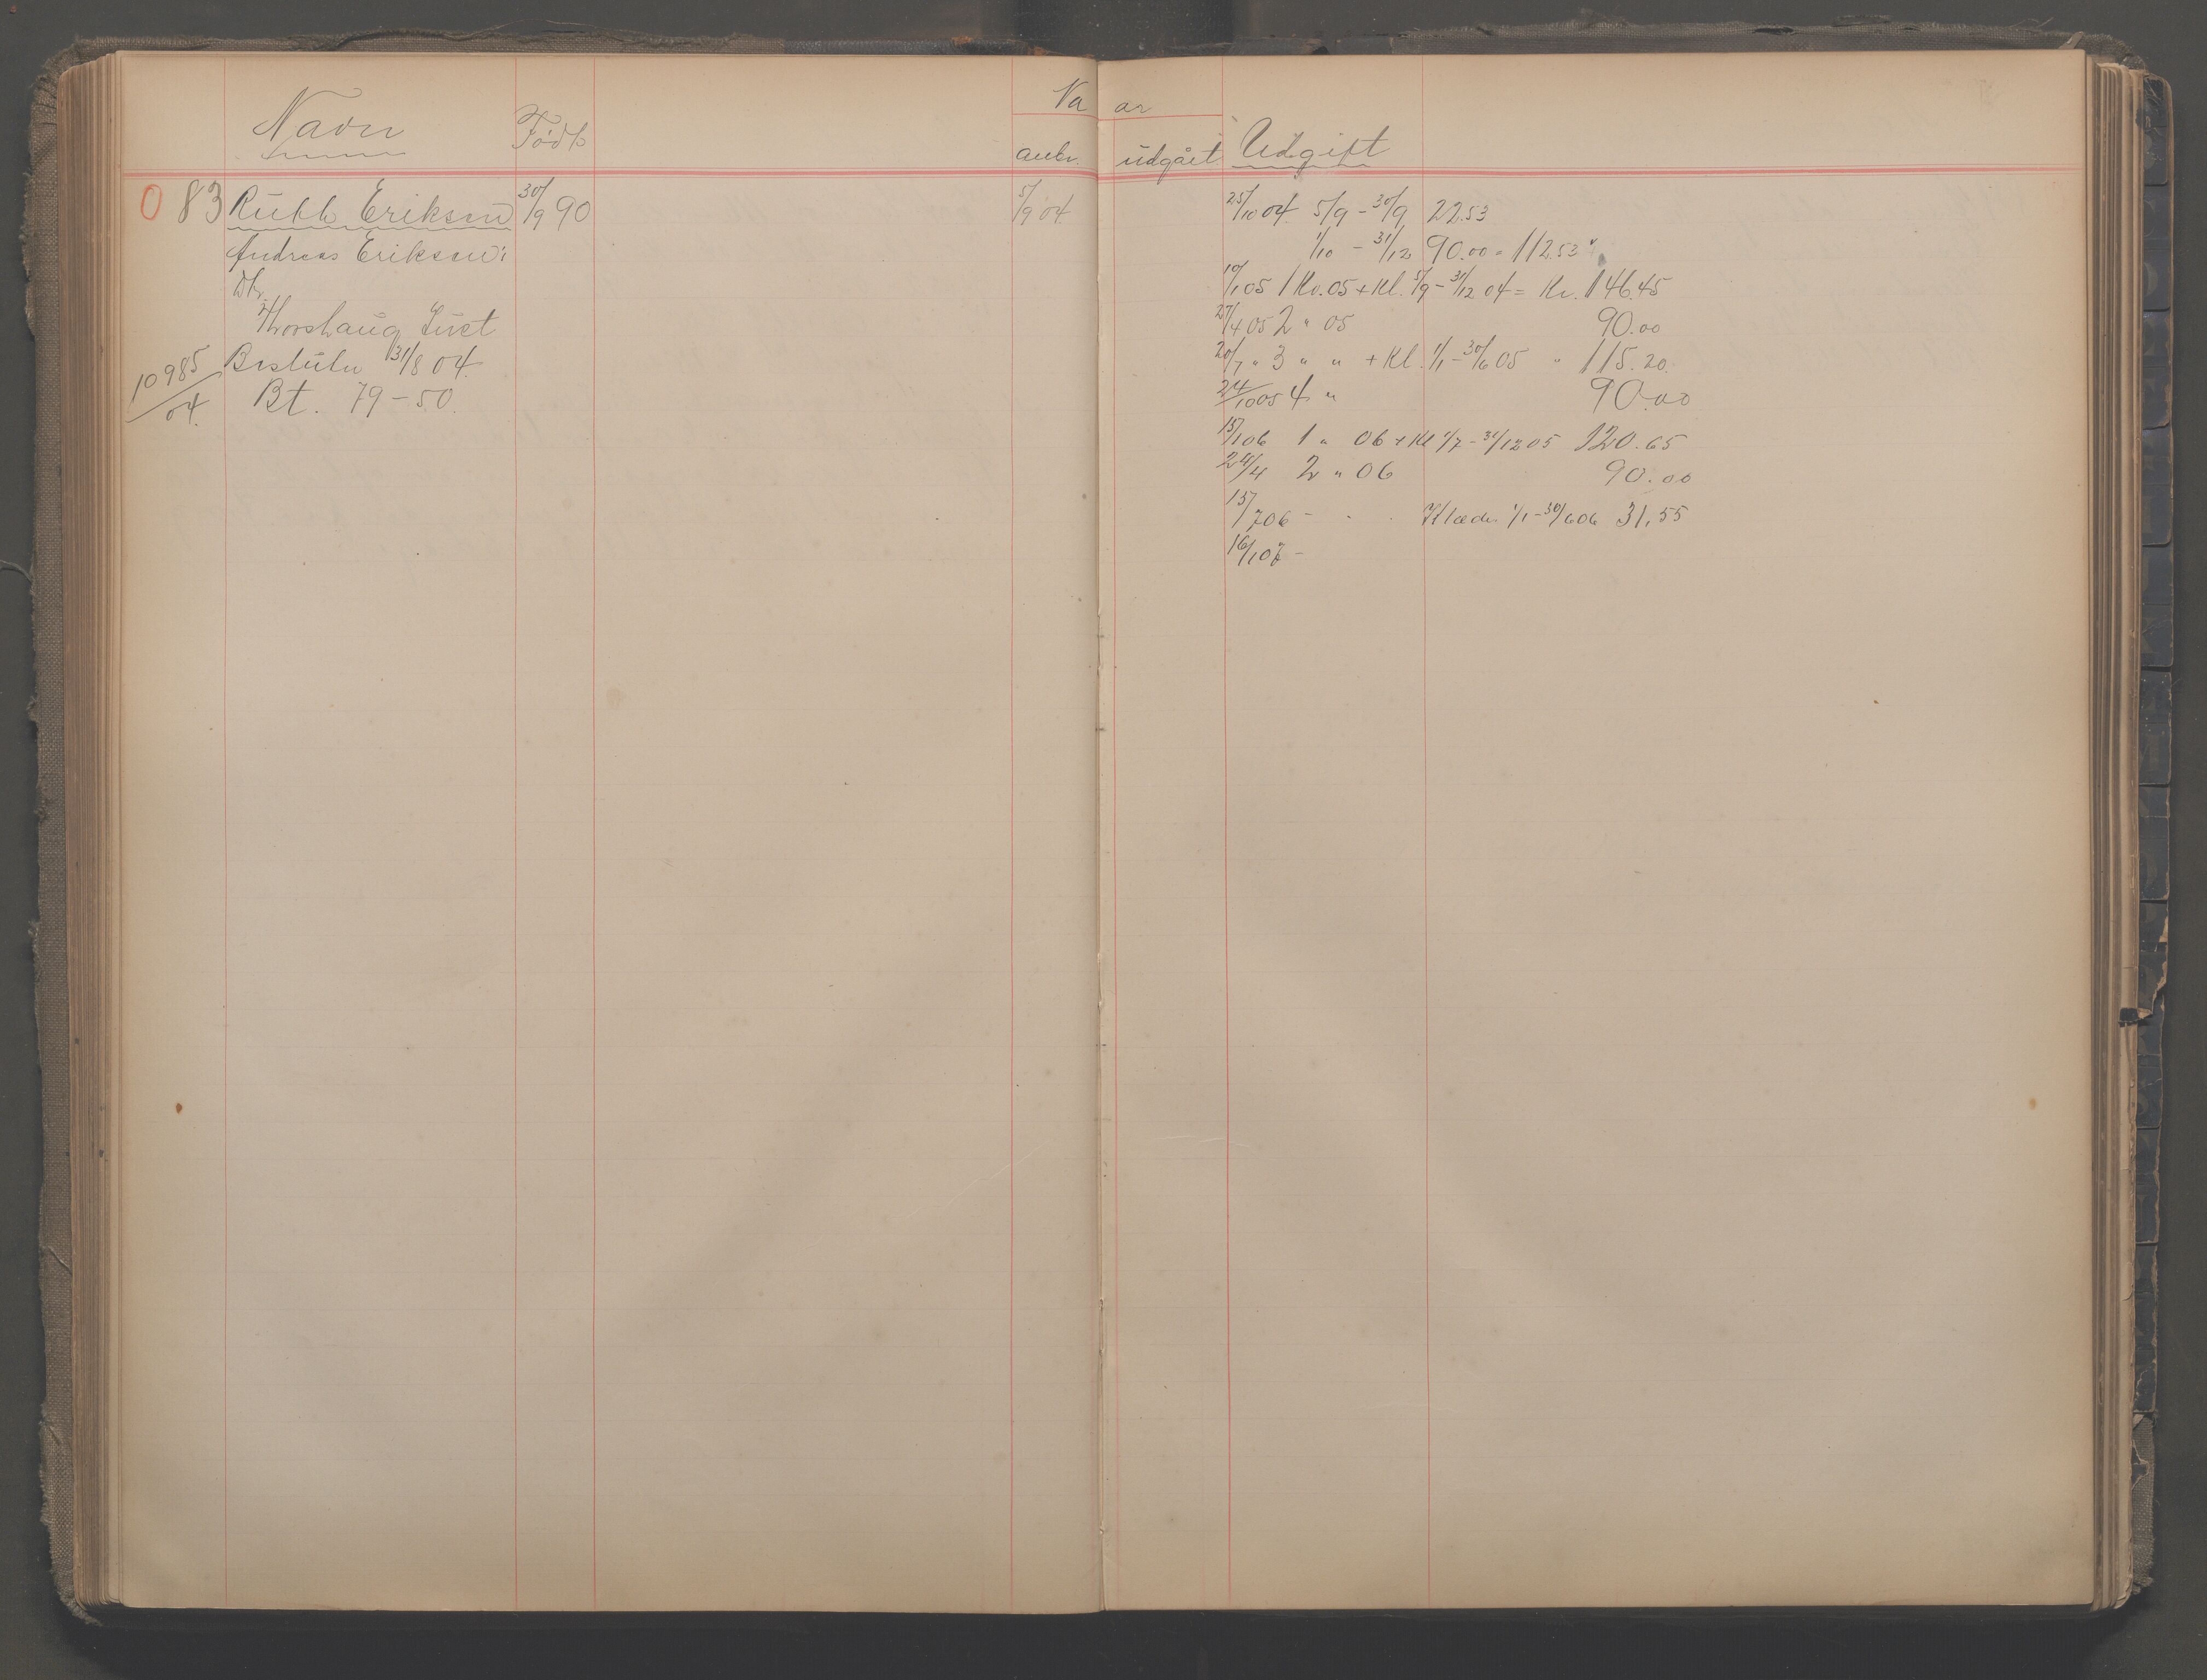 Navn Født Na ar
anbr. udgået Udgift
0 83 Ruth Eriksen 30/9 90 5/9 04
Andreas Eriksen's
Dtr.
Thorshaug Inst
10985/04 Beslutn 31/8 04.
Bt. 79-50.
25/10 04 5/9 - 30/9 22.53
1/10 - 31/12 90.00 = 112.53
10/1 05 1 Kv. 05 + Kl. 5/9 - 31/12 04 = Kr. 146.45
27/4 05 2 " 05 90.00
20/7 " 3 " " + Kl. 1/1 - 30/6 05 " 115.20.
24/10 05 4 " 90.00
15/1 06 1 " 06 + Kl 1/7 - 31/12 05 120.65
24/4 2 " 06 90.00
15/7 06 - Klæder 1/1 - 30/6 06 31,55
16/1 07 -